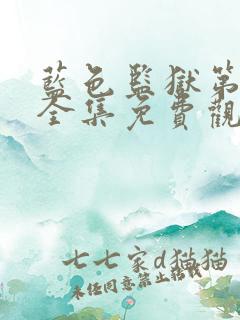 藍色監獄第
全集免費觀
七七家d猫猫
未经同意禁止转载